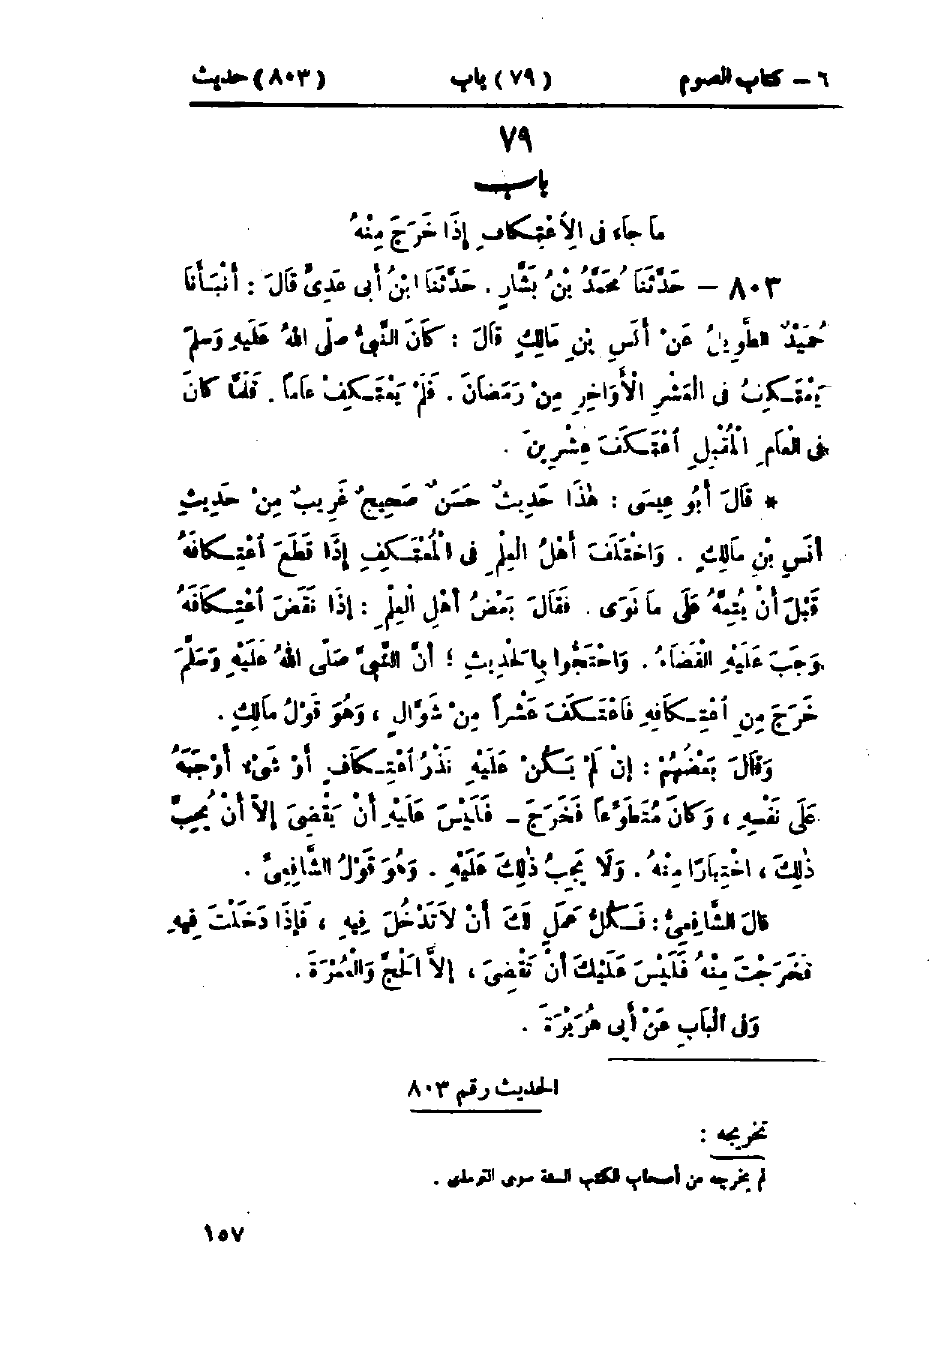 ٦ – كتاب الصوم (٧٩) باب (٨٠٣) حديث
٧٩
باب
مَا جَاءَ فى الِاعْتِكَافِ إِذَا خَرَجَ مِنْهُ
٨٠٣ – حَدَّثَنَا مُحَمَّدُ بْنُ بَشَّارٍ . حَدَّثَنَا ابْنُ أَبى عَدِىٍّ قَالَ : أَنْبَأَنَا
حُمَيْدٌ الطَّوِيلُ عَنْ أَنَسِ بْنِ مَالِكٍ قَالَ : كَانَ النَّبِىُّ صلّى اللهُ عَلَيْهِ وَسَلمَ
يَعْتَكِفُ فى الْعَشْرِ الْأَوَاخِرِ مِنْ رَمَضَانَ . فَلَمْ يَعْتَكِفْ عَاماً . فَلَمَّا كَانَ
فى الْعَامِ الْمُقْبِلِ اعْتَكَفَ عِشْرِينَ .
* قَالَ أَبُو عِيسَى : هٰذَا حَدِيثٌ حَسَنٌ صَحِيحٌ غَرِيبٌ مِنْ حَدِيثِ
أَنَسِ بْنِ مَالِكٍ . وَاخْتَلَفَ أَهْلُ الْعِلْمِ فى الْمُعْتَكِفِ إِذَا قَطَعَ اعْتِكَافَهُ
قَبْلَ أَنْ يُتِمَّهُ عَلَى مَا نَوَى . فَقَالَ بَعْضُ أَهْلِ الْعِلْمِ : إِذَا نَقَضَ اعْتِكَافَهُ
وَجَبَ عَلَيْهِ الْقَضَاءُ . وَاحْتَجُّوا بِالْحَدِيثِ ؛ أَنَّ النَّبِىَّ صَلّى اللهُ عَلَيْهِ وَسَلَّمَ
خَرَجَ مِنِ اعْتِكَافِهِ فَاعْتَكَفَ عَشْراً مِنْ شَوَّالٍ ، وَهُوَ قَوْلُ مَالِكٍ .
وَقَالَ بَعْضُهُمْ : إِنْ لَمْ يَكُنْ عَلَيْهِ نَذْرُ اعْتِكَافٍ أَوْ شَىْءٌ أَوْجَبَهُ
عَلَى نَفْسِهِ ، وَكَانَ مُتَطَوِّعاً فَخَرَجَ – فَلَيْسَ عَلَيْهِ أَنْ يَقْضِىَ إِلاَّ أَنْ يُحِبَّ
ذٰلِكَ ، اخْتِيَارًا مِنْهُ . وَلَا يَجِبُ ذٰلِكَ عَلَيْهِ . وَهُوَ قَوْلُ الشَّافِعِىِّ .
قَالَ الشَّافِعِىُّ : فَكُلُّ عَمَلٍ لَكَ أَنْ لاَ تَدْخُلَ فِيهِ ، فَإِذَا دَخَلْتَ فِيهِ
فَخَرَجْتَ مِنْهُ فَلَيْسَ عَلَيْكَ أَنْ تَقْضِىَ ، إِلاَّ الْحَجَّ وَالْعُمْرَةَ .
وَفى الْبَابِ عَنْ أَبِى هُرَيْرَةَ .
الحديث رقم ٨٠٣
تخريجه :
لم يخرجه من أصحاب الكتب الستة سوى الترمذى .
١٥٧